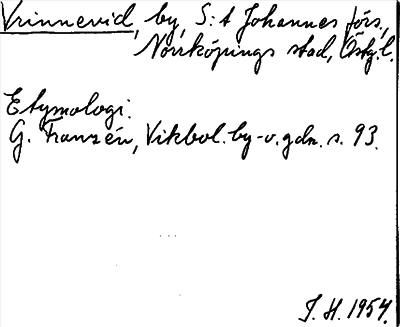 Vrinnevid, by, S:t Johannes förs,
Norrköpings stad, Östg.l.
Etymologi.
G. Franzén, Vikbol. by- o. gdn. s. 93.
J. H. 1954.